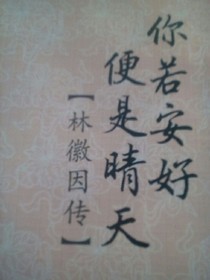 你若安好
便是晴天
【林徽因传】